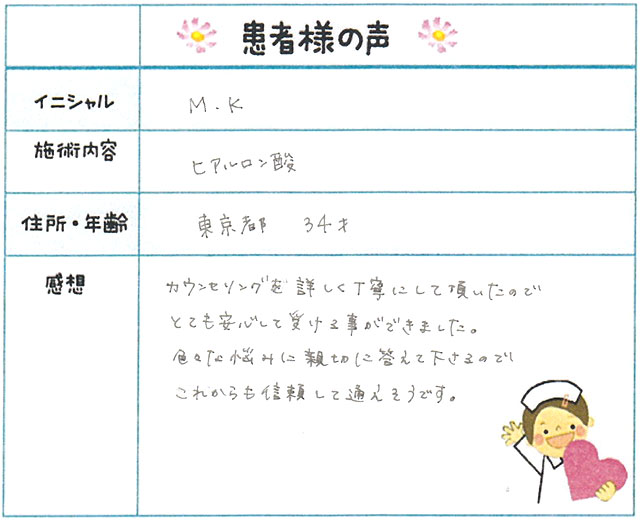 患者様の声
イニシャル M.K
施術内容 ヒアルロン酸
住所・年齢 東京都 34才
感想
カウンセリングを詳しく丁寧にして頂いたので
とても安心して受ける事ができました。
色々な悩みに親切に答えて下さるので
これからも信頼して通えそうです。